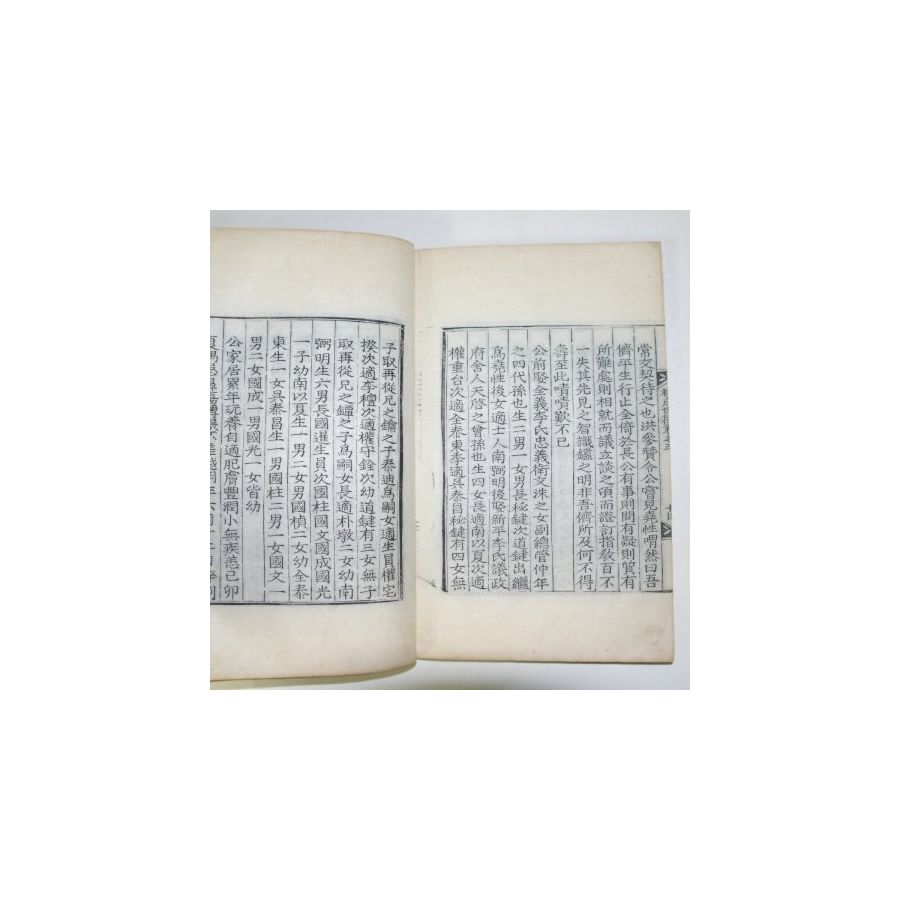 常交契待之也洪參贊令公嘗見堯性喟然曰吾
儕平生行止全倚於長公有事則問有疑則質有
所難處則相就而議立談之頃而證訂指敎百不
一失其先見之智識鑑之明非吾儕所及何不得
壽至此嘖嘖歎不已
公前娶全義李氏忠義衛文洙之女副總管仲年
之四代孫也生二男一女男長秘鍵次道鍵出繼
爲堯性後女適士人南弼明後娶新平李氏議政
府舍人天啓之曾孫也生四女長適南以夏次適
權重台次適全泰東李適具泰昌秘鍵有四女無
子取再從兄之鑰之子泰迪爲嗣女適生員權宅
揆次適李檀次適權守銓次幼道鍵有三女無子
取再從兄之鐔之子爲嗣女長適朴墩二女幼南
弼明生六男長國暹生員次國柱國文國成國光
一子幼南以夏生一男二女男國楨二女幼全泰
東生一女具泰昌生一男國柱二男一女國文一
男二女國成一男國光一女皆幼
公家居累年玩養自適肥膚豐潤小無疾恙己卯